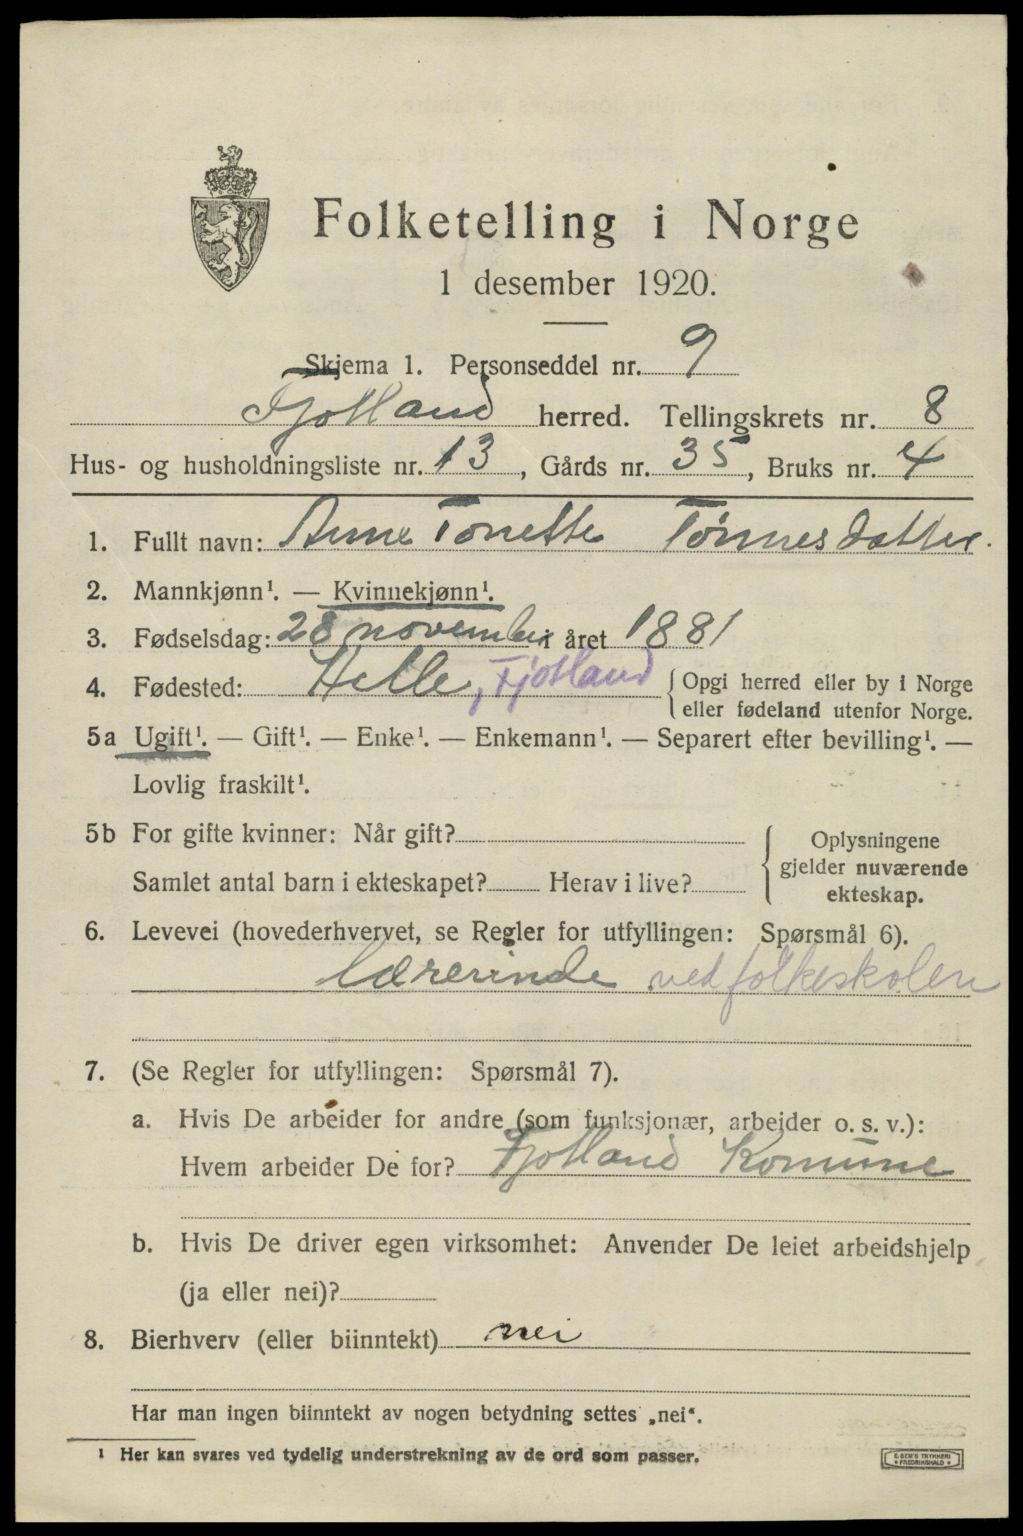 Folketelling i Norge
1 desember 1920.
Skjema 1. Personseddel nr. 9
Fjotland herred. Tellingskrets nr. 8
Hus- og husholdningsliste nr. 13, Gårds nr. 35, Bruks nr. 4
1. Fullt navn: Anne Tonette Tønnesdatter.
2. Mannkjønn¹. — Kvinnekjønn¹.
3. Fødselsdag: 28 november i året 1881
4. Fødested: Helle, Fjotland { Opgi herred eller by i Norge
eller fødeland utenfor Norge.
5a Ugift¹. — Gift¹. — Enke¹. — Enkemann¹. — Separert efter bevilling¹. —
Lovlig fraskilt¹.
5b For gifte kvinner: Når gift?
Samlet antal barn i ekteskapet? Herav i live?
Oplysningene
gjelder nuværende
ekteskap.
6. Levevei (hovederhvervet, se Regler for utfyllingen: Spørsmål 6).
Lærerinde ved folkeskolen
7. (Se Regler for utfyllingen: Spørsmål 7).
a. Hvis De arbeider for andre (som funksjonær, arbeider o. s. v.):
Hvem arbeider De for? Fjotland Komune
b. Hvis De driver egen virksomhet: Anvender De leiet arbeidshjelp
(ja eller nei)?
8. Bierhverv (eller biinntekt) nei
Har man ingen biinntekt av nogen betydning settes „nei“.
¹ Her kan svares ved tydelig understrekning av de ord som passer.
E. SEM'S TRYKKERI
FREDRIKSHALD